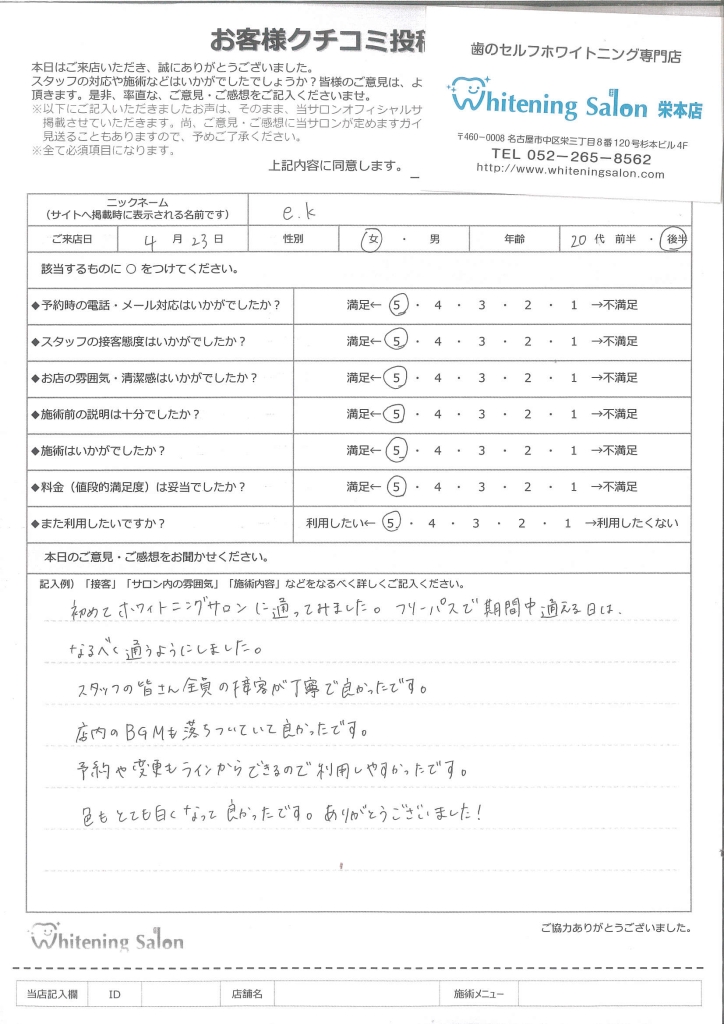 お客様クチコミ投稿
本日はご来店いただき、誠にありがとうございました。
スタッフの対応や施術などはいかがでしたでしょうか？皆様のご意見は、よ
頂きます。是非、率直な、ご意見・ご感想をご記入くださいませ。
※以下にご記入いただきましたお声は、そのまま、当サロンオフィシャルサ
掲載させていただきます。尚、ご意見・ご感想に当サロンが定めますガイ
見送ることもありますので、予めご了承ください。
※全て必須項目になります。
上記内容に同意します。
歯のセルフホワイトニング専門店
Whitening Salon 栄本店
〒460-0008 名古屋市中区栄三丁目8番120号杉本ビル4F
TEL 052-265-8562
http://www.whiteningsalon.com
ニックネーム
（サイトへ掲載時に表示される名前です） e.k
ご来店日 4 月 23 日 性別 女 ・ 男 年齢 20 代 前半 ・ 後半
該当するものに ○ をつけてください。
◆予約時の電話・メール対応はいかがでしたか？ 満足← 5 ・ 4 ・ 3 ・ 2 ・ 1 →不満足
◆スタッフの接客態度はいかがでしたか？ 満足← 5 ・ 4 ・ 3 ・ 2 ・ 1 →不満足
◆お店の雰囲気・清潔感はいかがでしたか？ 満足← 5 ・ 4 ・ 3 ・ 2 ・ 1 →不満足
◆施術前の説明は十分でしたか？ 満足← 5 ・ 4 ・ 3 ・ 2 ・ 1 →不満足
◆施術はいかがでしたか？ 満足← 5 ・ 4 ・ 3 ・ 2 ・ 1 →不満足
◆料金（値段的満足度）は妥当でしたか？ 満足← 5 ・ 4 ・ 3 ・ 2 ・ 1 →不満足
◆また利用したいですか？ 利用したい← 5 ・ 4 ・ 3 ・ 2 ・ 1 →利用したくない
本日のご意見・ご感想をお聞かせください。
記入例）「接客」「サロン内の雰囲気」「施術内容」などをなるべく詳しくご記入ください。
初めてホワイトニングサロンに通ってみました。フリーパスで期間中通える日は、
なるべく通うようにしました。
スタッフの皆さん全員の接客が丁寧で良かったです。
店内のBGMも落ちついていて良かったです。
予約や変更もラインからできるので利用しやすかったです。
色もとても白くなって良かったです。ありがとうございました！
ご協力ありがとうございました。
Whitening Salon
当店記入欄 ID 店舗名 施術メニュー